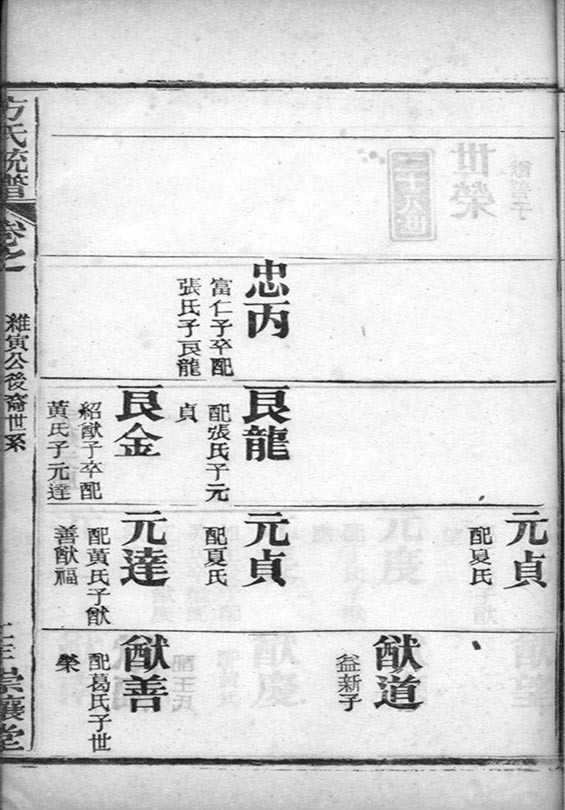 方氏統譜
卷之一
雜寅公後裔世系
崇讓堂
元貞
配夏氏
猷道
益新子
忠丙
富仁子卒配
張氏子艮龍
艮龍
配張氏子元
貞
元貞
配夏氏
艮金
紹猷子卒配
黃氏子元達
元達
配黃氏子猷
善猷福
猷善
配葛氏子世
榮